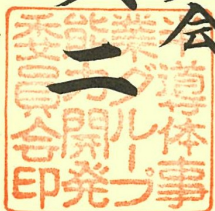 会
二
半導体事
業グループ
能力開発
委員会印